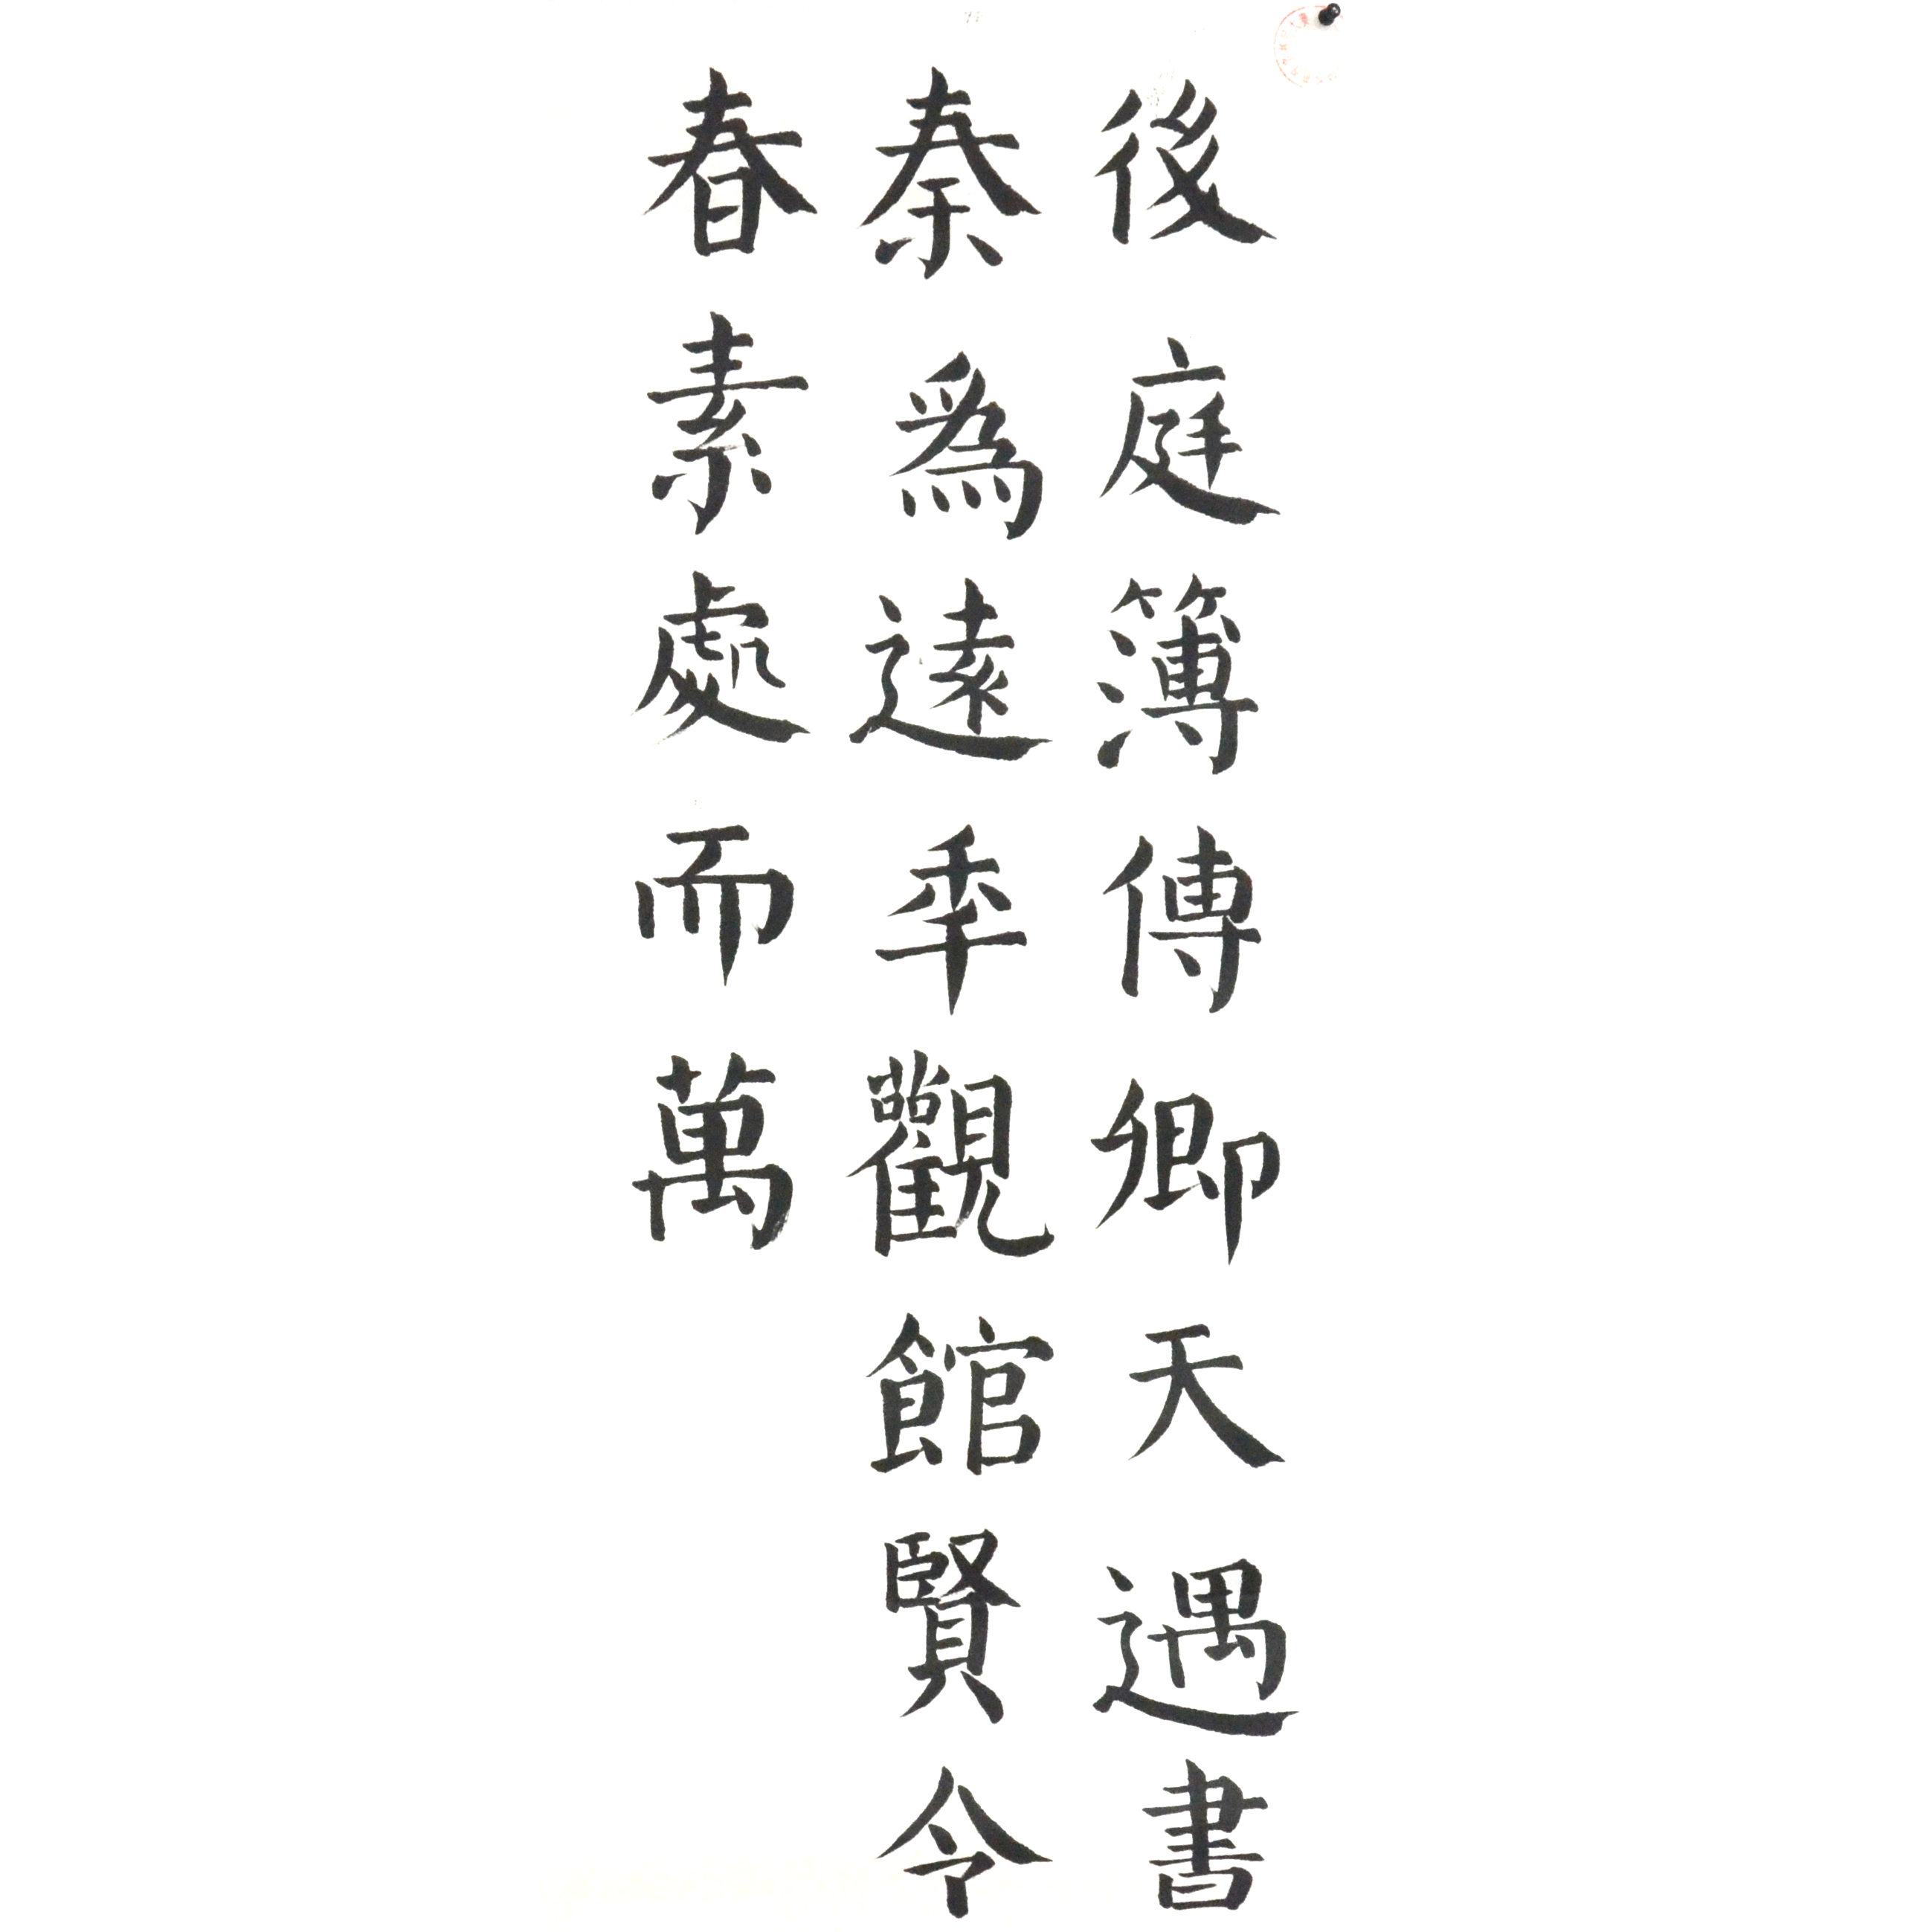 後庭簿傳卿天遇書
秦爲遠秊觀館賢令
春素處而萬